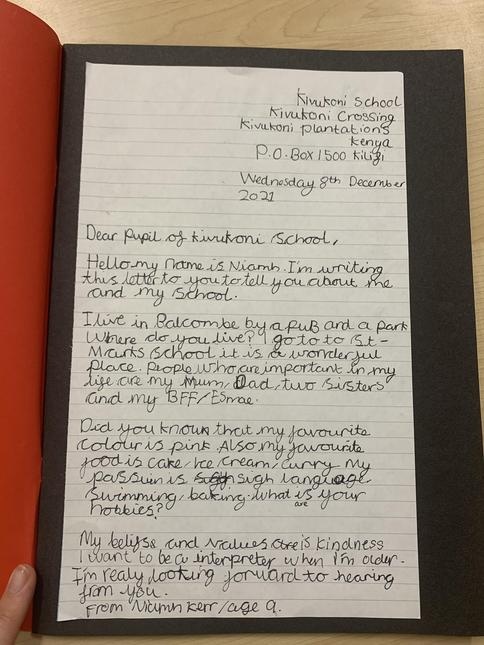 Kivukoni School
Kivukoni Crossing
Kivukoni plantations
Kenya
P.O.Box 1500 Kilifi
Wednesday 8th December
2021
Dear Pupil of kivukoni School,
Hello my name is Niamh. I'm writing
this letter to you to tell you about me
and my school.
I live in Balcombe by a pub and a park
Where do you live? I go to to St-
Marks School it is a wonderful
place. People who are important in my
life are my Mum, Dad, two Sisters
and my BFF/Esmae.
Did you know that my favourite
colour is pink. Also my favourite
food is cake, Ice cream, curry. My
passion is sigh language.
Swimming, baking. what is your
are
hobbies?
My belifse and values are is kindness
I want to be a interpreter when I'm older.
I'm realy looking forward to hearing
from you.
From Niamh kerr/age 9.